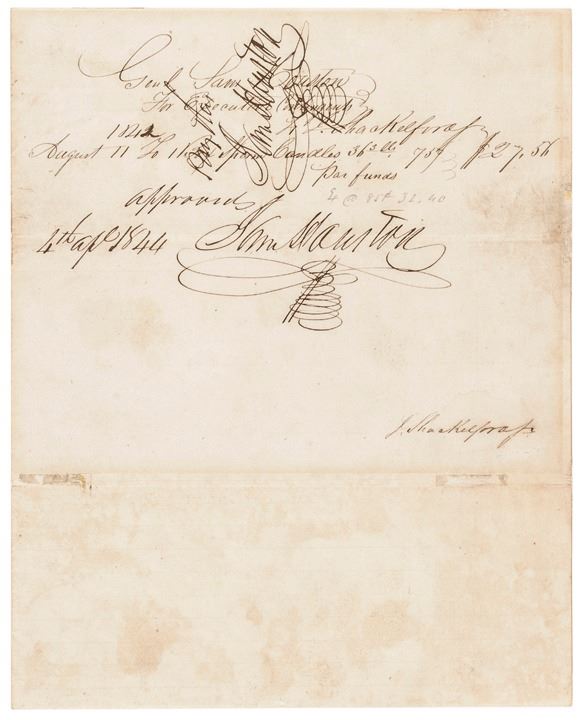 Genl Sam Houston
For Executive
1842 To J. Shackelford Jr
August 11 To 1 Sperm Candles 36 3/4 lb 75¢ $27.56
Par funds
@ 85¢ 32.40
approved
4th apl 1844 Sam Houston
Sam Houston
J. Shackelford Jr